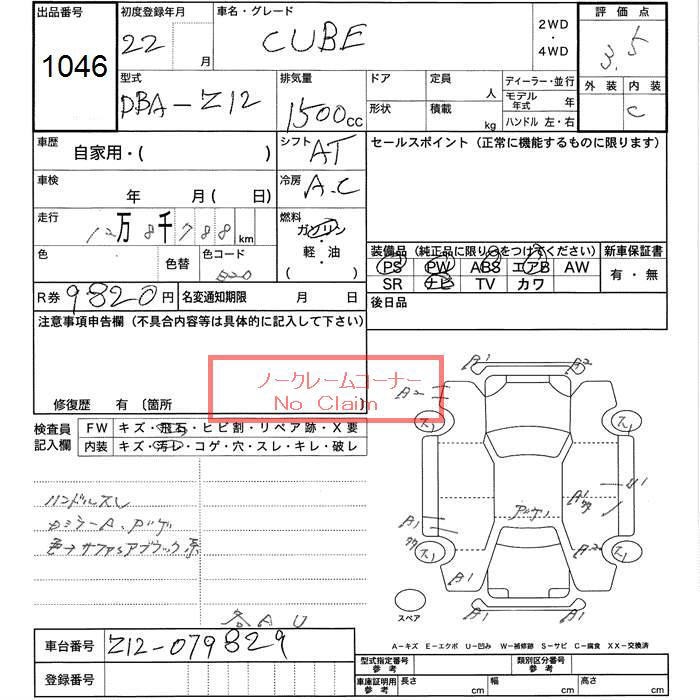 出品番号 初度登録年月 車名・グレード 2WD ・ 4WD 評価点
1046 22 月 CUBE 3.5
型式 DBA-Z12 排気量 1500cc ドア 定員 人 ディーラー・並行 外装 内装
形状 積載 kg モデル年式 年 C
ハンドル 左・右
車歴 自家用・( ) シフト AT セールスポイント (正常に機能するものに限ります)
車検 年 月( 日) 冷房 A.C
走行 12万8千788km 燃料 ガソリン・軽・油 ( )
色 色替 色コード B20 装備品 (純正品に限り○をつけてください) 新車保証書
PS PW ABS エアB AW 有・無
SR ナビ TV カワ
R券 9820円 名変通知期限 月 日 後日品
注意事項申告欄 (不具合内容等は具体的に記入して下さい)
ノークレームコーナー
No Claim
修復歴 有 〔箇所
検査員記入欄 FW キズ・飛石・ヒビ割・リペア跡・X要
内装 キズ・汚レ・コゲ・穴・スレ・キレ・破レ
A1 A2
A2
ス1 ス1
U1
A1
A1
ス1 A2 ス1
A1 A1
A1 A2
ハンドルスレ
スペア
各AU
車台番号 Z12-079829
A-キズ E-エクボ U-凹み W-補修跡 S-サビ C-腐食 XX-交換済
登録番号
型式指定番号 参考 類別区分番号 参考
車庫証明用 参考 長さ cm 幅 cm 高さ cm